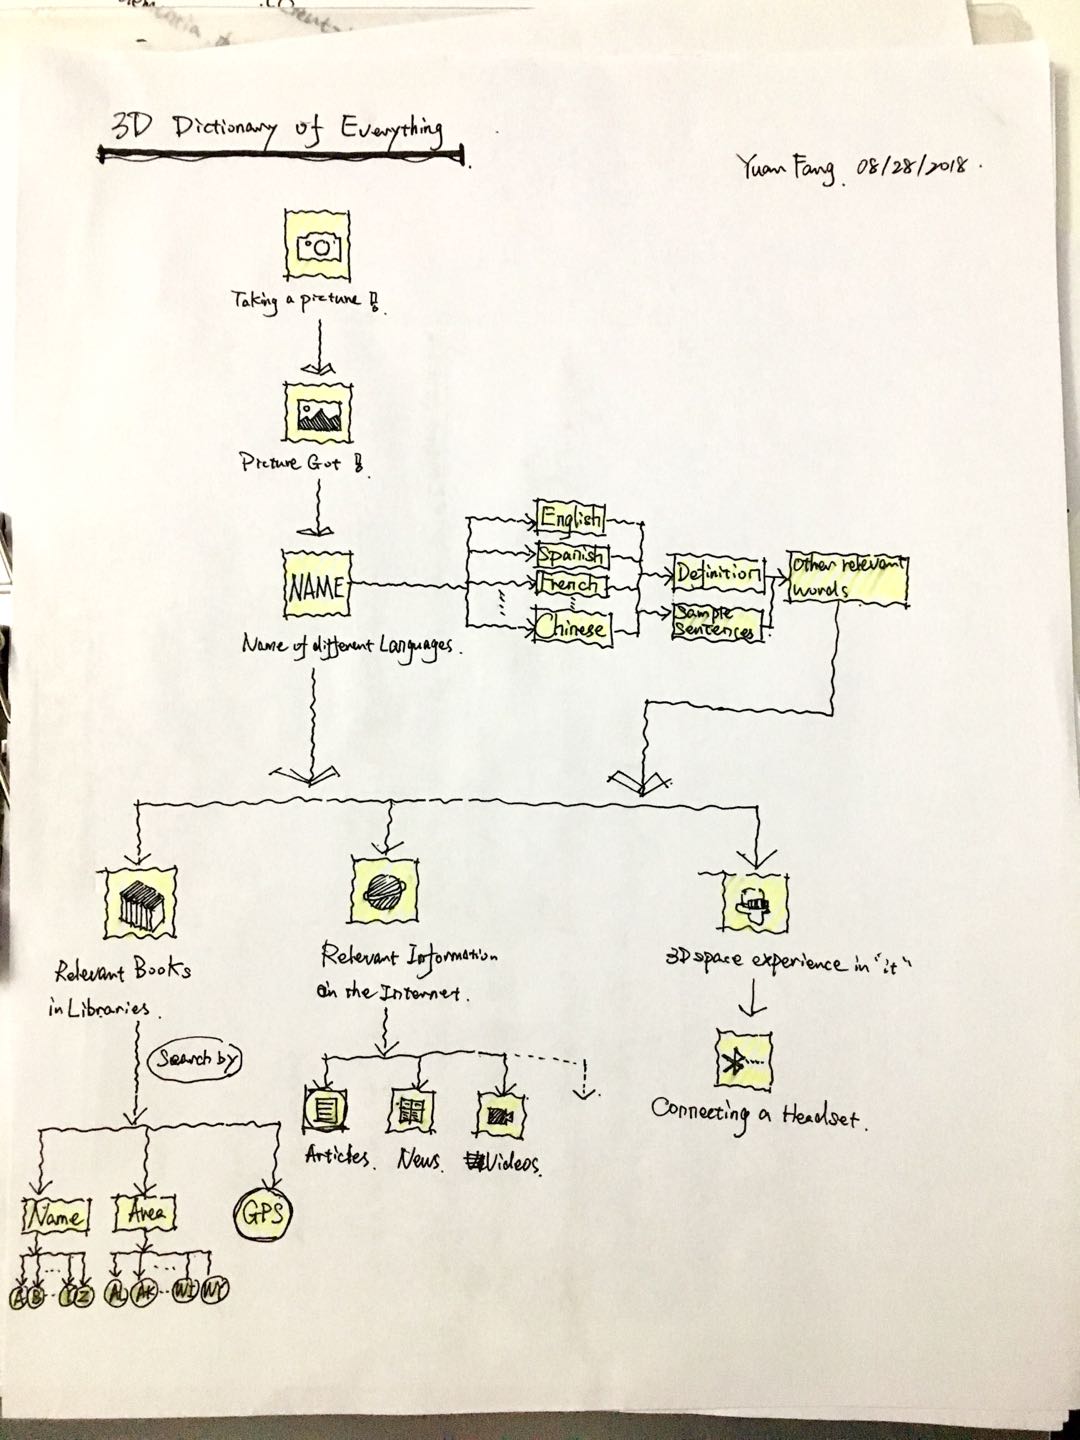 3D Dictionary of Everything
Yuan Fang. 08/28/2018.
Taking a picture
Picture Got
NAME
Name of different Languages.
English
Spanish
French
Chinese
Definition
Sample
Sentences
Other relevent
words
Relevant Books
in Libraries.
Search by
Name
Area
GPS
A B Y Z
AL AK WI WY
Relevant Information
on the Internet.
Articles. News. Videos.
3D space experience in "it"
Connecting a Headset.